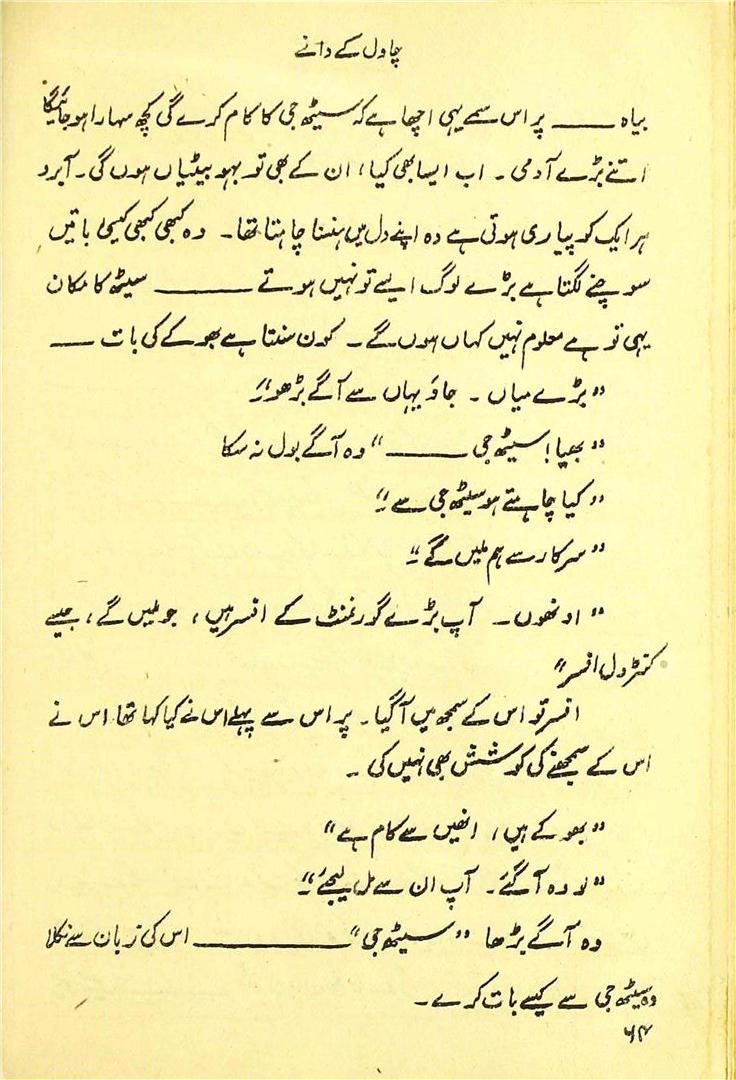 چاول کے دانے
بیاہ ـــــــ پر اس سمے یہی اچھا ہے کہ سیٹھ جی کا کام کرے گی کچھ سہارا ہو جائیگا
اتنے بڑے آدمی ۔ اب ایسا بھی کیا، ان کے بھی تو بہو بیٹیاں ہوں گی ۔ آبرو
ہر ایک کو پیاری ہوتی ہے وہ اپنے دل میں ہنسنا چاہتا تھا ۔ وہ کبھی کبھی کیسی باتیں
سوچنے لگتا ہے بڑے لوگ ایسے تو نہیں ہوتے ـــــــــــ سیٹھ کا مکان
یہی تو ہے معلوم نہیں کہاں ہوں گے ۔ کون سنتا ہے بھوکے کی بات ــــ
”بڑے میاں ۔ جاؤ یہاں سے آگے بڑھو“
”بھیا! سیٹھ جی ـــــــــ“ وہ آگے بول نہ سکا
”کیا چاہتے ہو سیٹھ جی سے“
”سرکار سے ہم ملیں گے“
”اونھوں ۔ آپ بڑے گورنمنٹ کے افسر ہیں، جو ملیں گے، جیسے
کنٹرول افسر“
افسر تو اس کے سمجھ میں آگیا ۔ پر اس سے پہلے اس نے کیا کہا تھا اس نے
اس کے سمجھنے کی کوشش بھی نہیں کی ۔
”بھوکے ہیں، انھیں سے کام ہے“
”لو وہ آگئے ۔ آپ ان سے مل لیجئے“
وہ آگے بڑھا ”سیٹھ جی“ ـــــــــــــــ اس کی زبان سے نکلا
وہ سیٹھ جی سے کیسے بات کرے ۔
۶۴